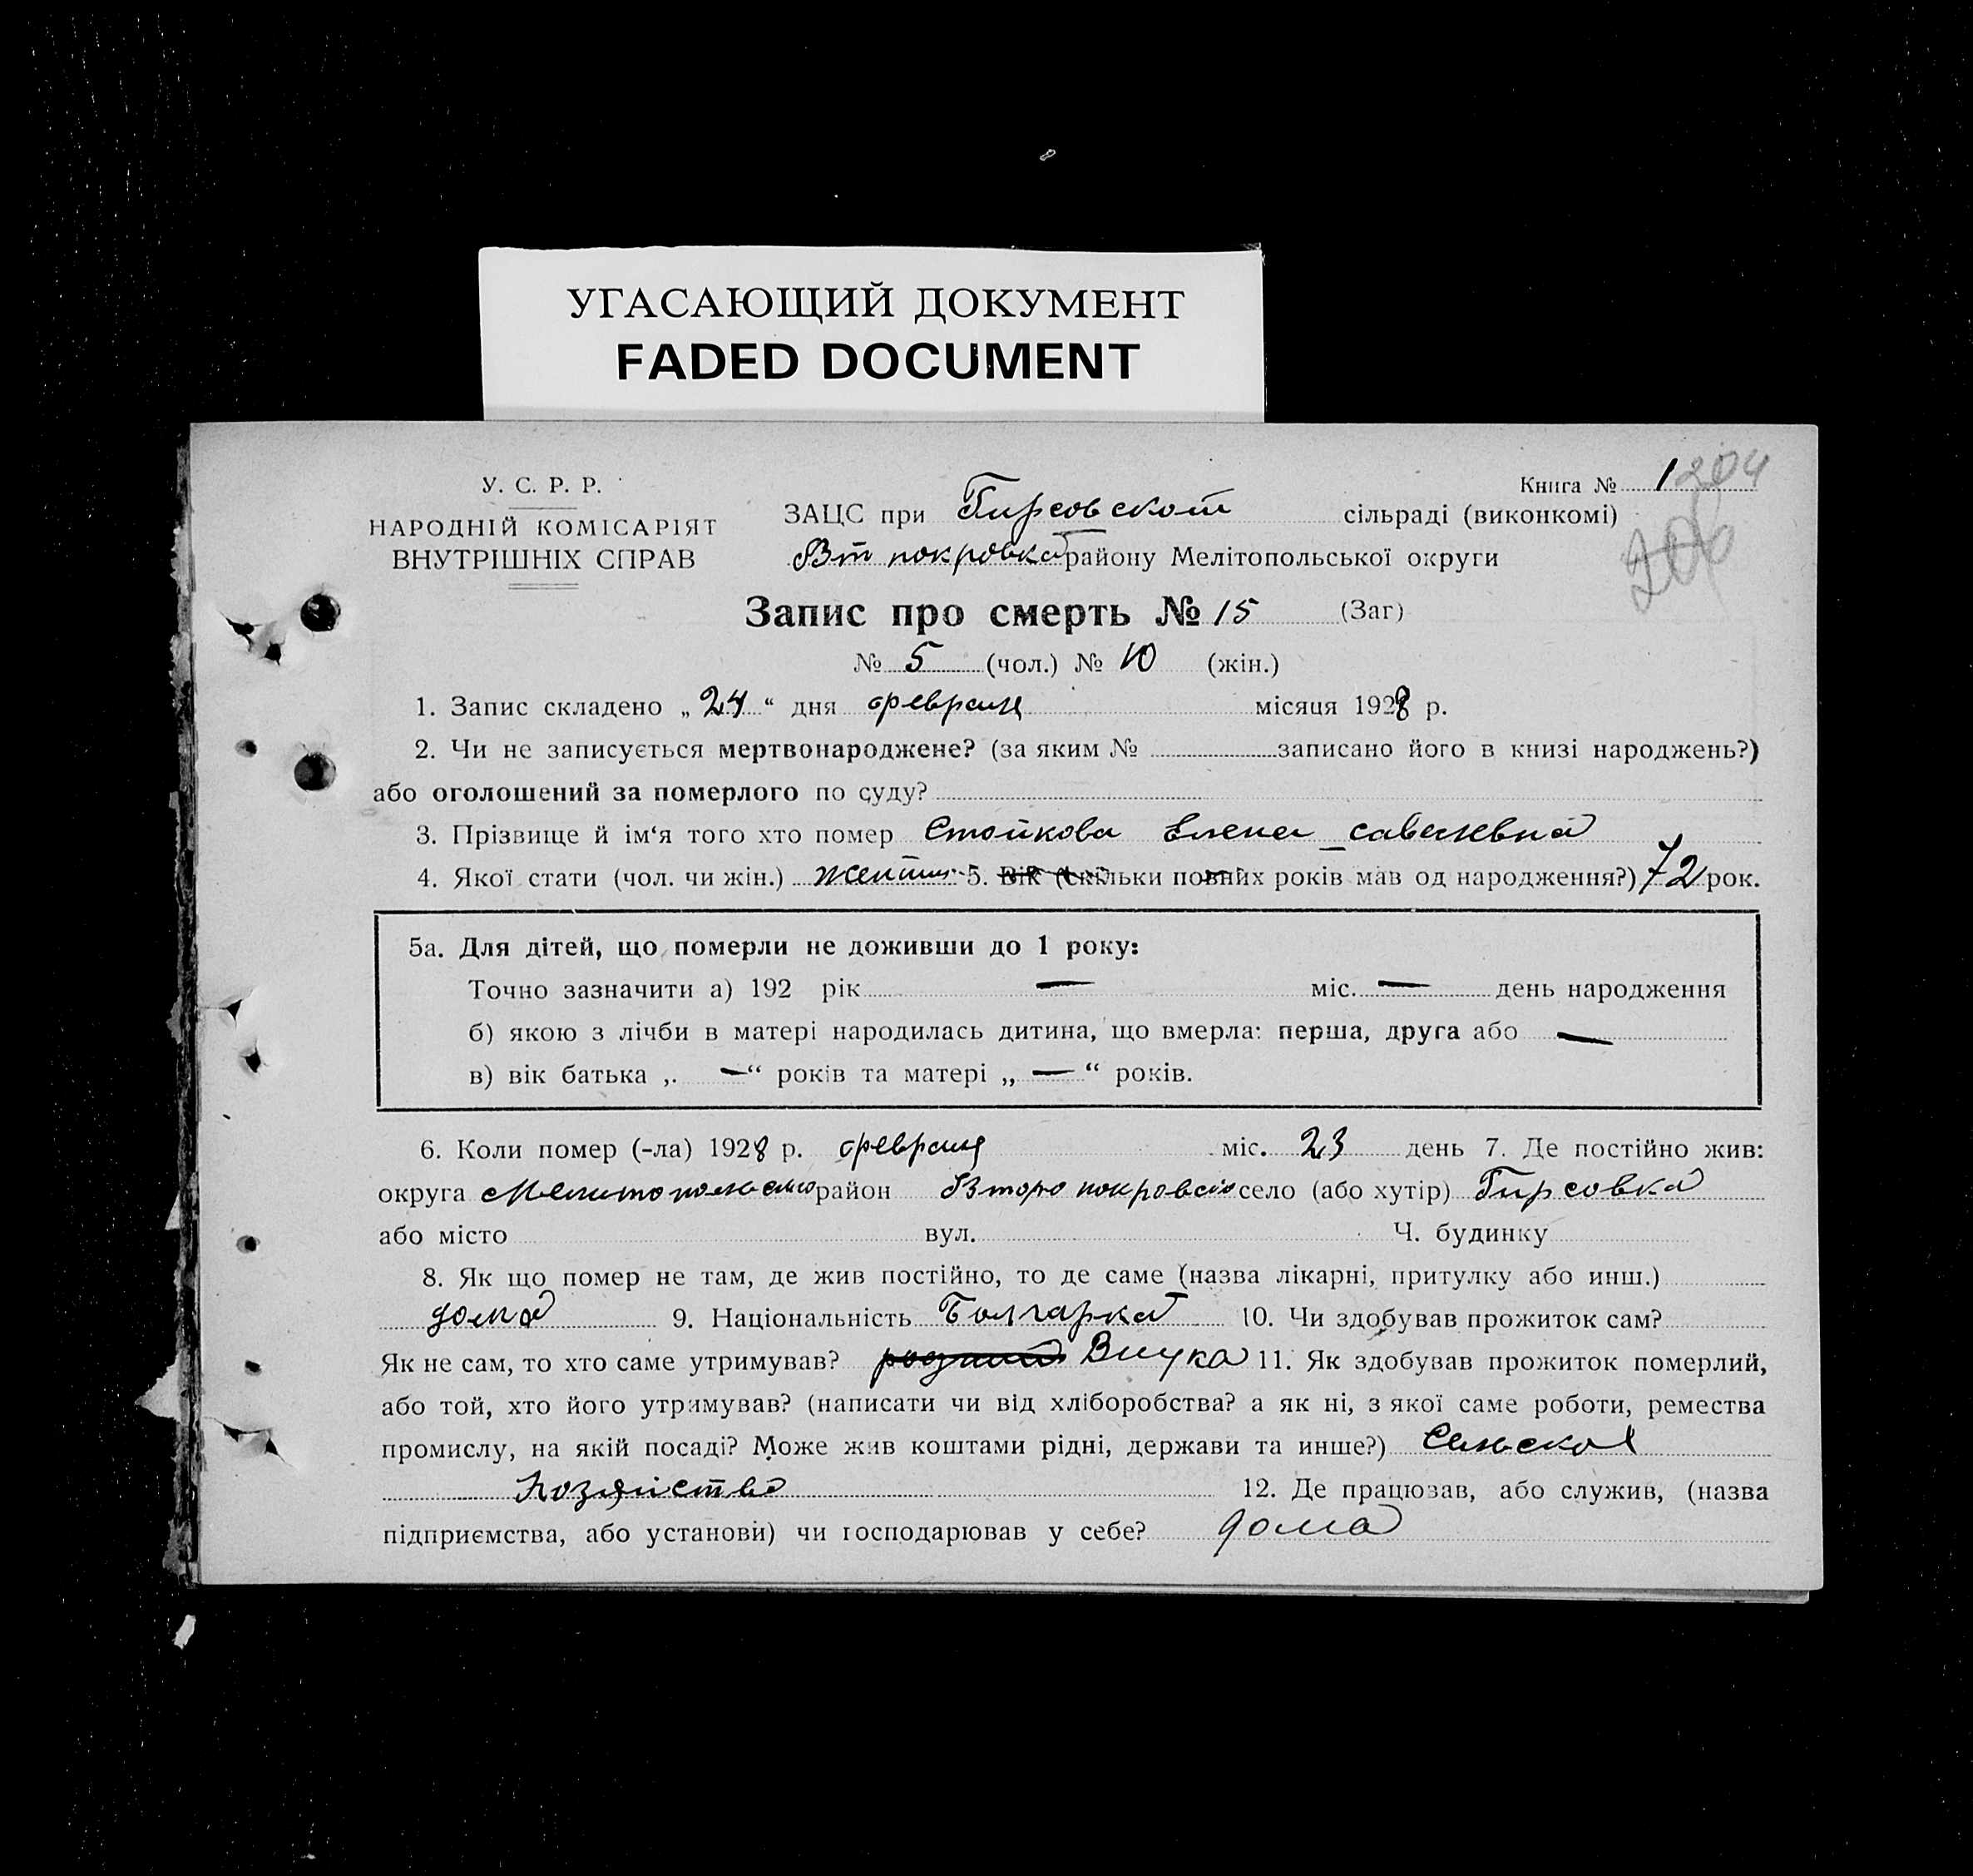 УГАСАЮЩИЙ ДОКУМЕНТ
FADED DOCUMENT
У. С. Р. Р.
НАРОДНІЙ КОМІСАРІЯТ
ВНУТРІШНІХ СПРАВ
Книга № 1 204
206
ЗАЦС при Гирсовской сільраді (виконкомі)
Вт покровка району Мелітопольської округи
Запис про смерть № 15 (Заг)
№ 5 (чол.) № 10 (жін.)
1. Запис складено „ 24 “ дня февраля місяця 1928 р.
2. Чи не записується мертвонароджене? (за яким № записано його в книзі народжень?)
або оголошений за померлого по суду?
3. Прізвище й ім‘я того хто помер Стойкова Елена савельевна
4. Якої стати (чол. чи жін.) 5. Вік (скільки повних років мав од народження?) 72 рок.
5а. Для дітей, що померли не доживши до 1 року:
Точно зазначити а) 192 рік — міс. — день народження
б) якою з лічби в матері народилась дитина, що вмерла: перша, друга або —
в) вік батька „ — “ років та матері „ — “ років.
6. Коли помер (-ла) 1928 р. февраля міс. 23 день 7. Де постійно жив:
округа Мелитопольского район Второ покровско село (або хутір) Гирсовка
або місто вул. Ч. будинку
8. Як що помер не там, де жив постійно, то де саме (назва лікарні, притулку або инш.)
дома 9. Національність Болгарка 10. Чи здобував прожиток сам?
Як не сам, то хто саме утримував? Внука 11. Як здобував прожиток померлий,
або той, хто його утримував? (написати чи від хліборобства? а як ні, з якої саме роботи, ремества
промислу, на якій посаді? Може жив коштами рідні, держави та инше?) Сельскої
хозяйство 12. Де працював, або служив, (назва
підприємства, або установи) чи господарював у себе? дома